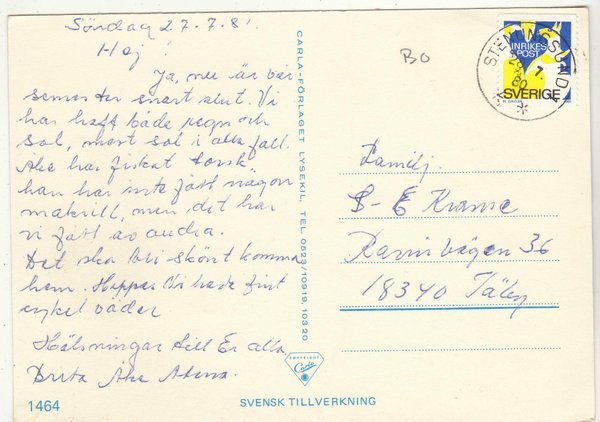 Söndag 27.7.81
Hej!
Ja, nu är vår
semester snart slut. Vi
har haft både regn och
sol, mest sol i alla fall.
Åke har fiskat torsk
han har inte fått någon
makrill, men det har
vi fått av andra.
Det ska bli skönt komma
hem. Hoppas Ni hade fint
cykel väder
Hälsningar till Er alla.
Brita Åke
1464
SVENSK TILLVERKNING
CARLA-FÖRLAGET LYSEKIL, TEL 0523/10919, 10320
COPYRIGHT
Carla
BO
STENUNGSUND
INRIKES
POST
SVERIGE
Familj.
S-E Kranse
Ravinvägen 36
18340 Täby